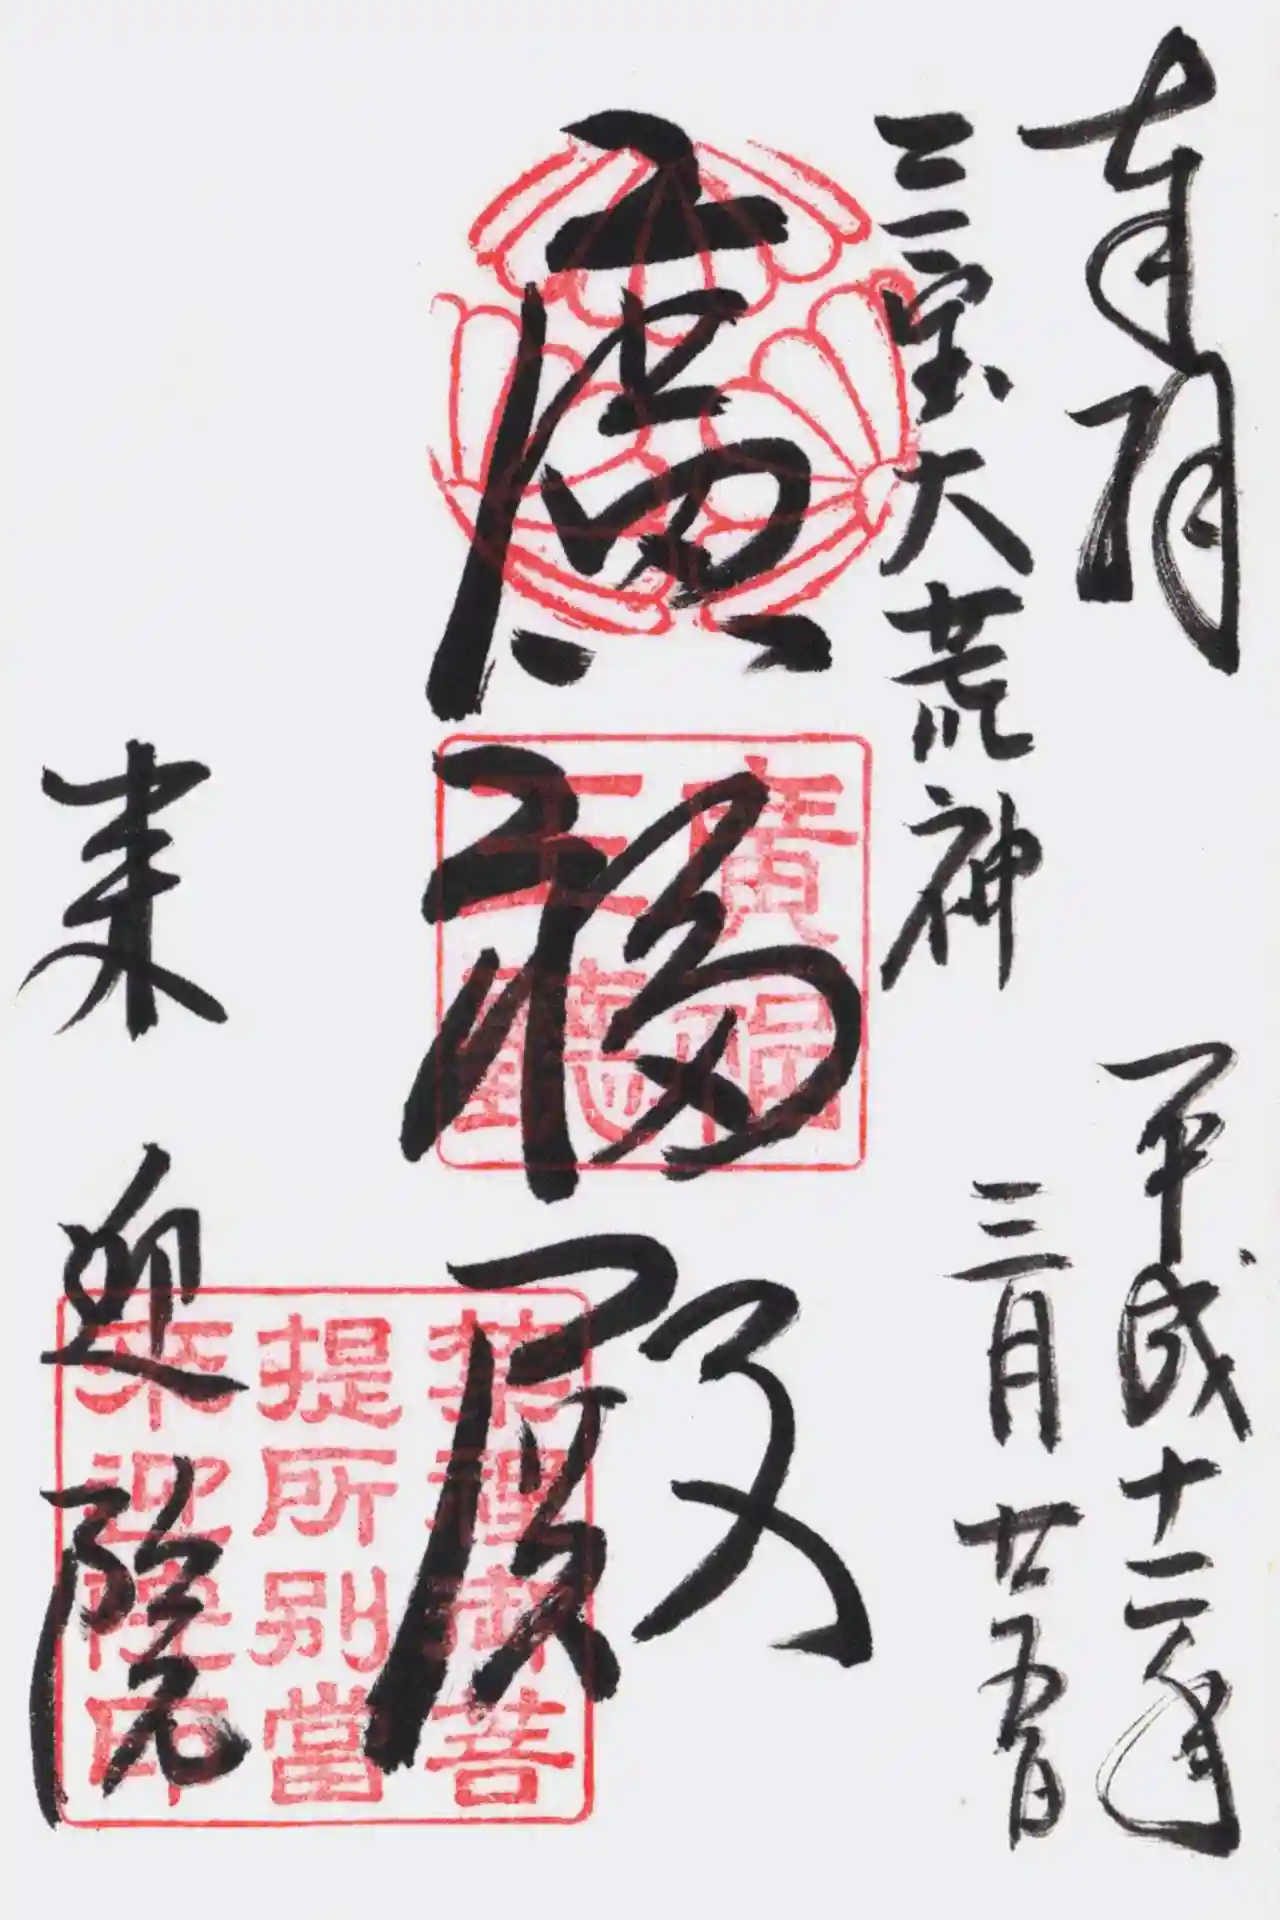 奉拝
三宝大荒神
平成十二年
三月廿五日
廣福殿
廣福
来迎院
禁裡御菩
提所別當
来迎院印